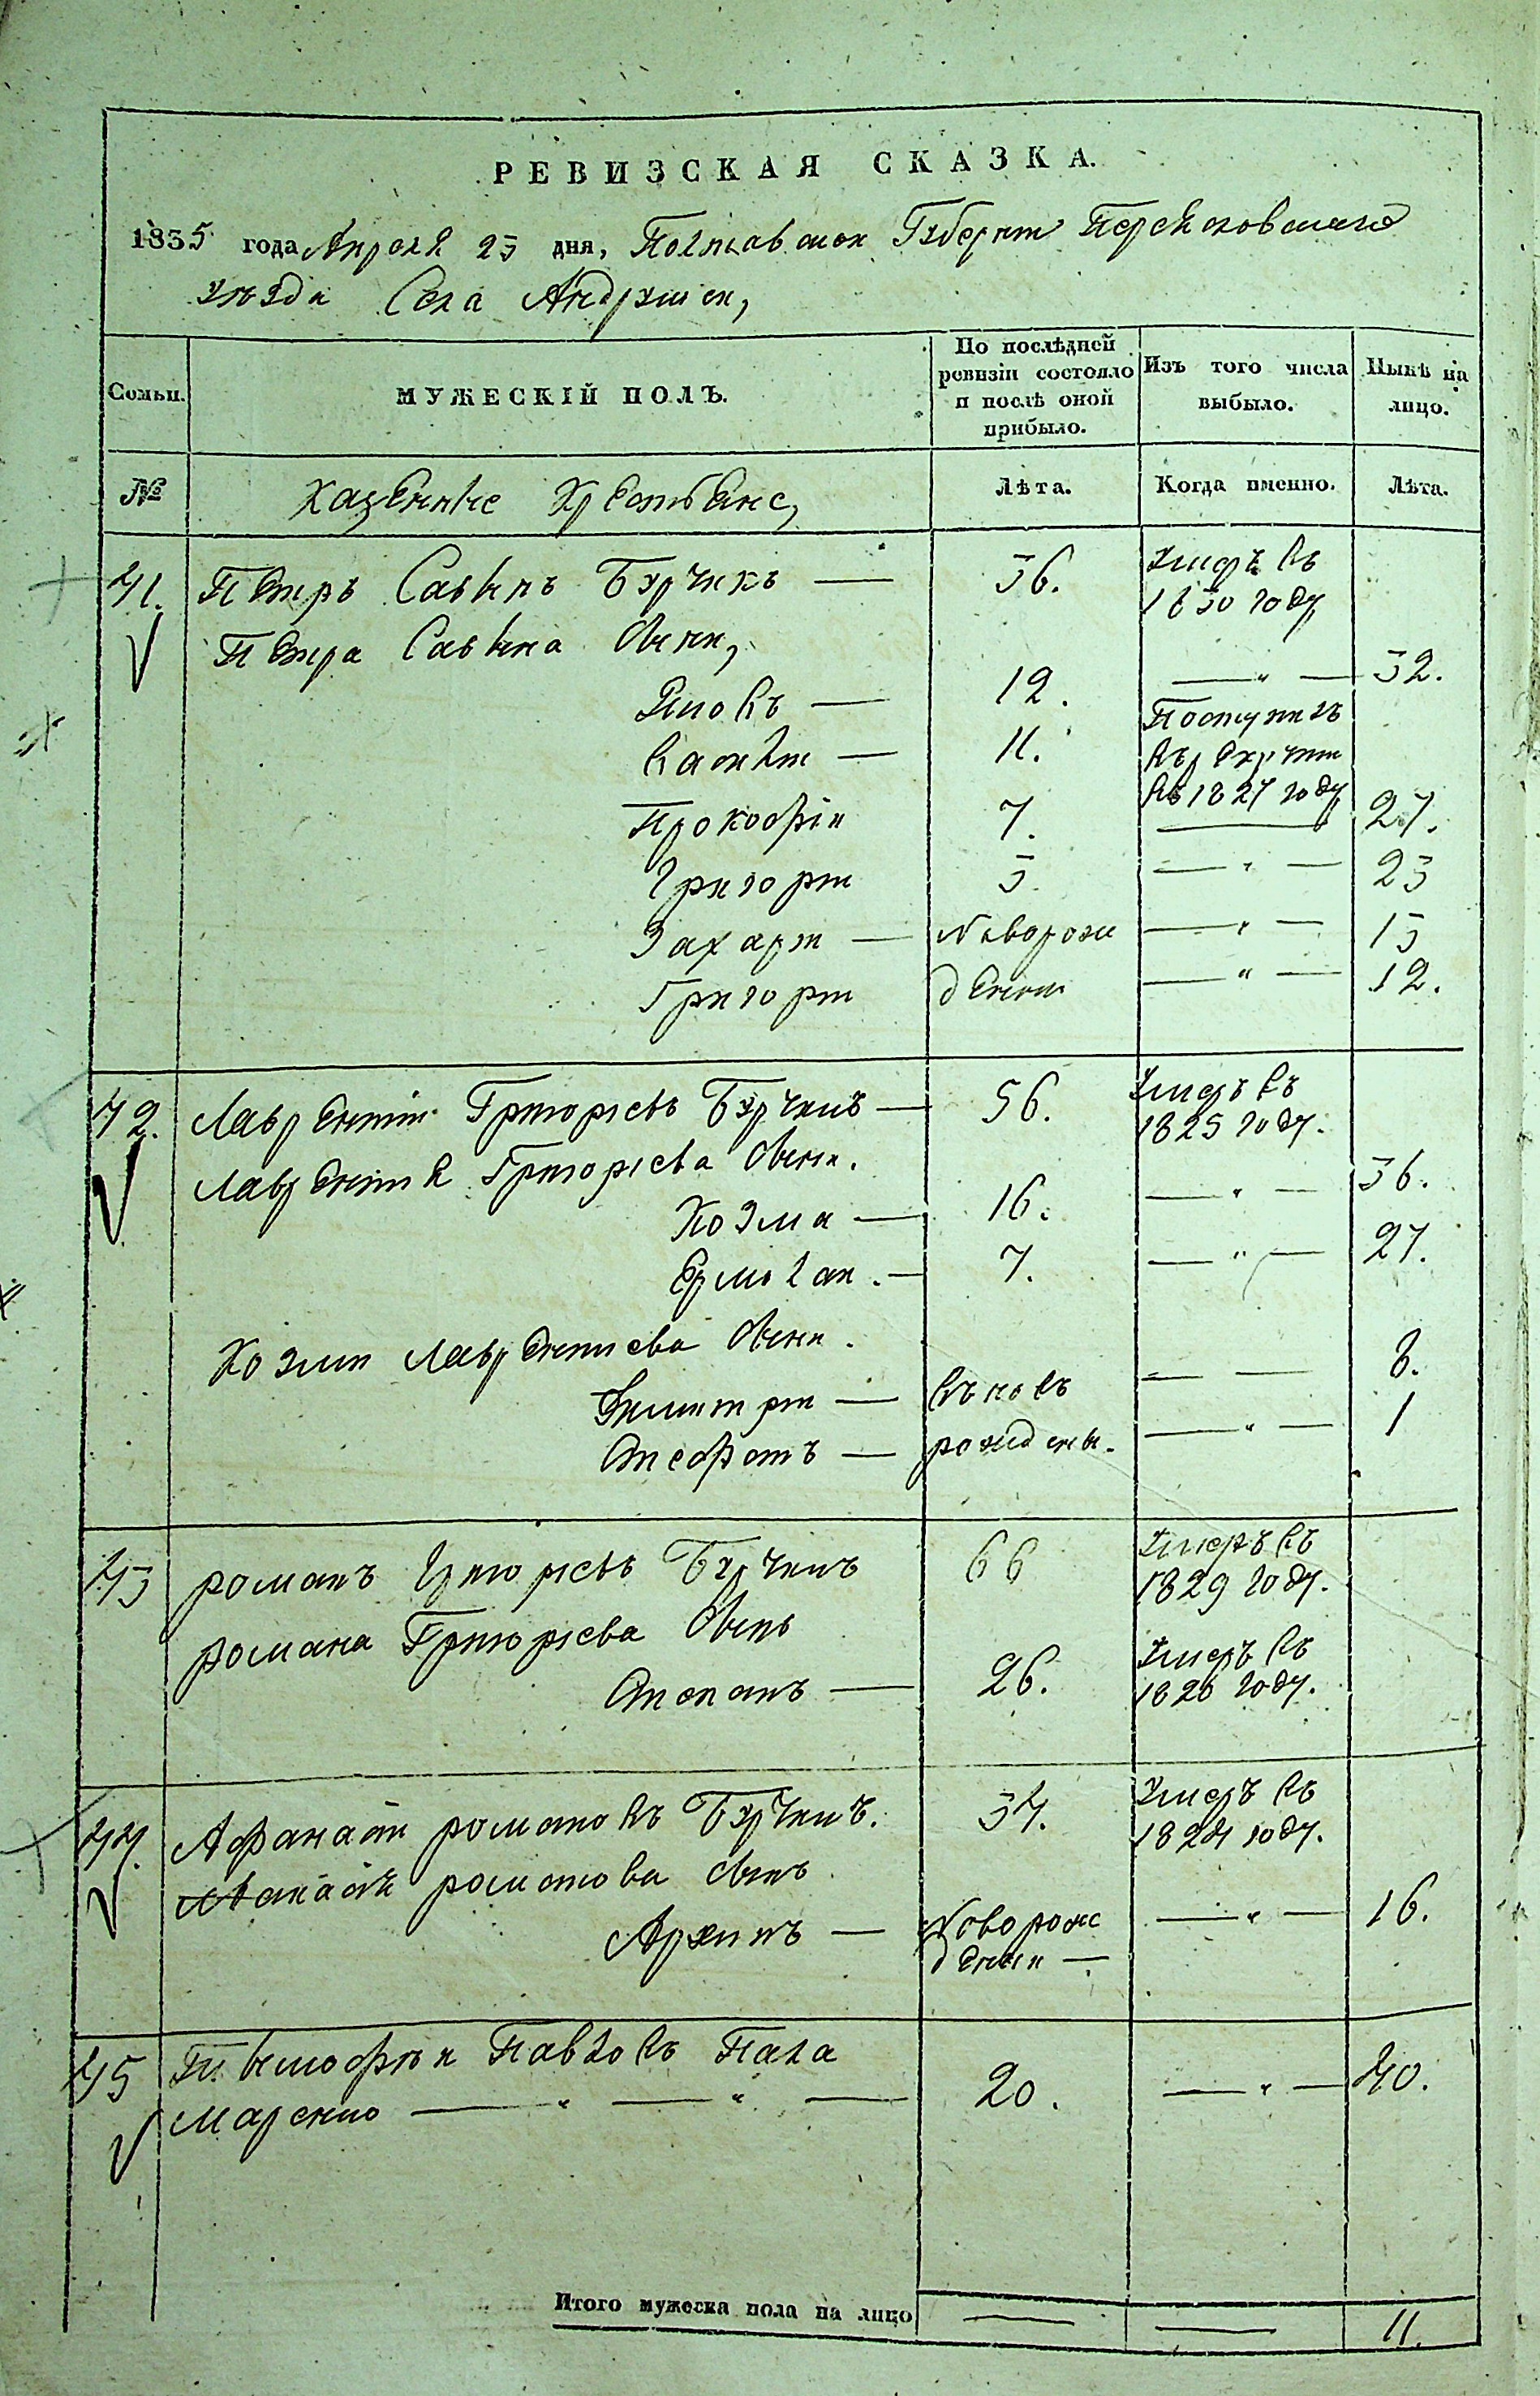 РЕВИЗСКАЯ СКАЗКА.
1835 года Апреля 23 дня, Полтавской Губернии Переясловскаго
уезда Села Андрушек,
Семьи. МУЖЕСКІЙ ПОЛЪ. По послѣдней ревизіи состояло и послѣ оной прибыло. Изъ того числа выбыло. Нынѣ на лицо.
№ Казенные Крестьяне, Лѣта. Когда именно. Лѣта.
41. Петръ Савинъ Бурчикъ — 36. Умеръ въ
1830 году
Петра Савина сыни,
Яковъ — 12. — " — 32.
— 11. Поступилъ
въ рекруты
въ 1827 году
Прокофій 7. — 27.
Григорій 3. — " — 23
Захарій — Новорож — " — 13
Григорій дении — " — 12.
42. Лаврентій Григорьевъ Бурчикъ — 56. Умеръ въ
1825 году.
Лаврентія Григорьева сыни.
Козма — 16. — " — 36.
Ермолай. — 7. — " — 27.
Козми Лаврентиева сыни.
Димитрій — вновь — — 8.
Стефанъ — рождены. — " — 1
43 романъ Григорьевъ Бурчикъ 66 Умеръ въ
1829 году.
романа Григорьева сынъ
Степанъ — 26. Умеръ въ
1828 году.
44. Афанасій романовъ Бурчикъ. 34. Умеръ въ
1824 году.
Афанасія романова сынъ
Архипъ — Новорож
дении — — " — 16.
45 Тимофѣй Павловъ Пала
Маренко — " — " — 20. — " — 40.
Итого мужеска пола на лицо — — 11.